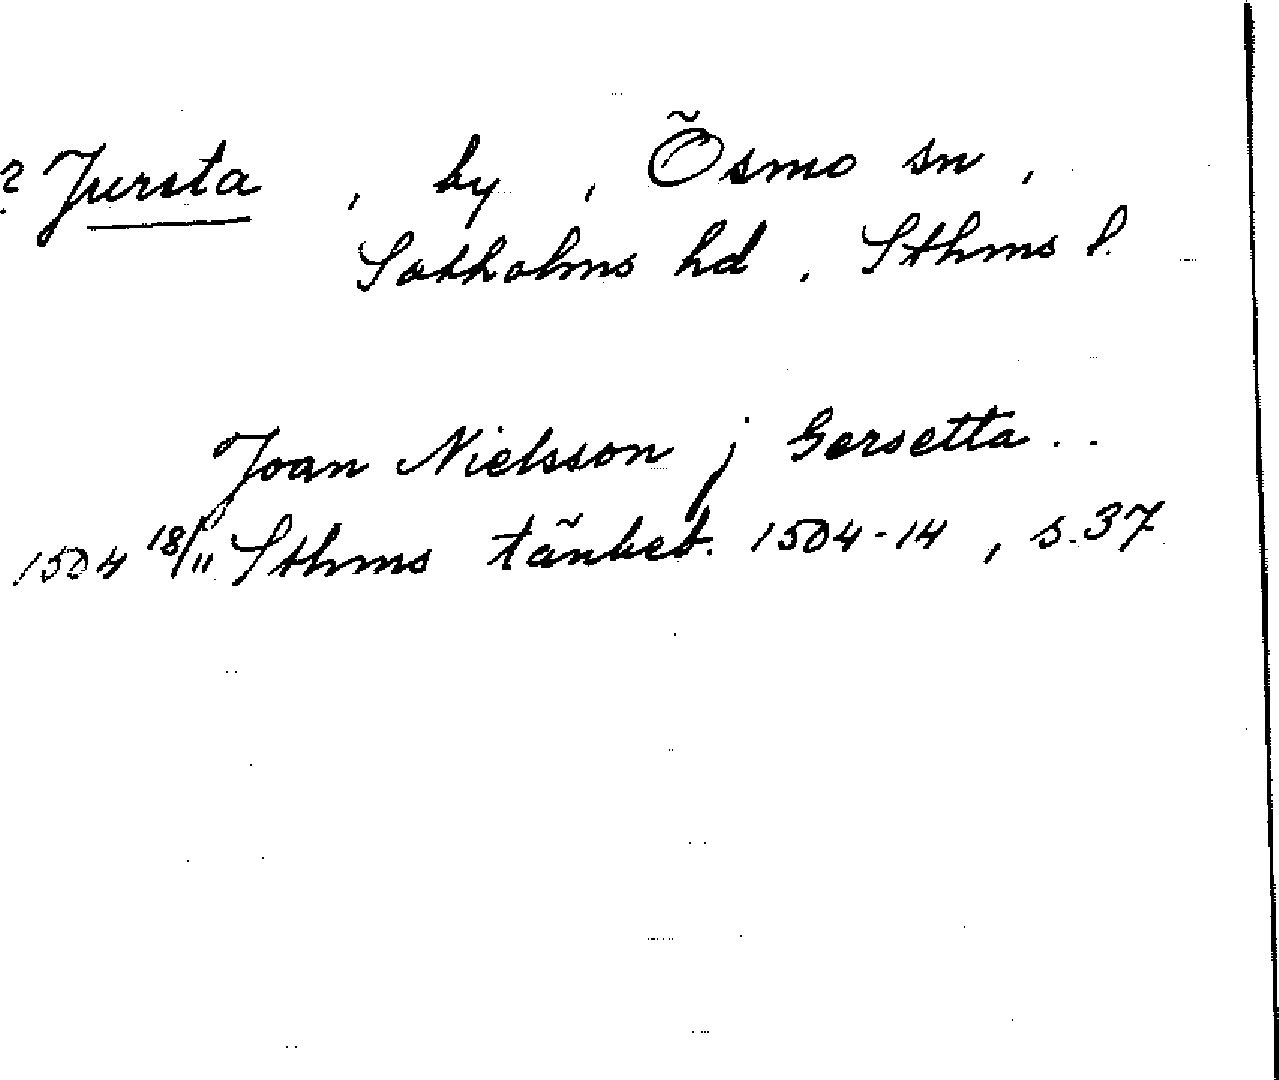 ? Jursta, by, Ösmo sn,
Sotholms hd, Sthms l.
Joan Nielsson j Gersetta..
1504 18/11 Sthms tänkeb. 1504-14, s.37